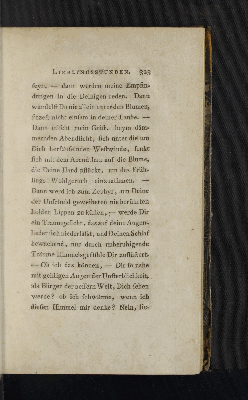 LIEBLINGSSTUNDEN. 325
seyn. — dann würden meine Empfin-
dungen in die Deinigen reden. Dann
wandelst Du nie allein unter den Blumen,
sitzest nicht einsam in deiner Laube. —
Dann mischt mein Geist, beym däm-
mernden Abendlicht, sich unter die um
Dich herhüpfenden Westwinde, sinkt
sich mit dem Abendthau auf die Blume,
die Deine Hand pflückt, um des Früh-
lings Wohlgeruch einzuathmen. —
Dann werd ich zum Zephyr, um Deine
der Unschuld geweiheten nie berührten
holden Lippen zu kühlen, — werde Dir
ein Traumgesicht, das auf deine Augen-
lieder sich niederläßt, und Deinen Schlaf
bewachend, nur durch ruheruhigende
Träume Himmelsgefühle Dir zuflüstert.
— Ob ich das können, — Dir so nahe
mit geistigen Augen der Unsterblichkeit,
als Bürger der bessern Welt, Dich sehen
werde? ob ich schwärme, wenn ich
diesen Himmel mir denke? Nein, So-